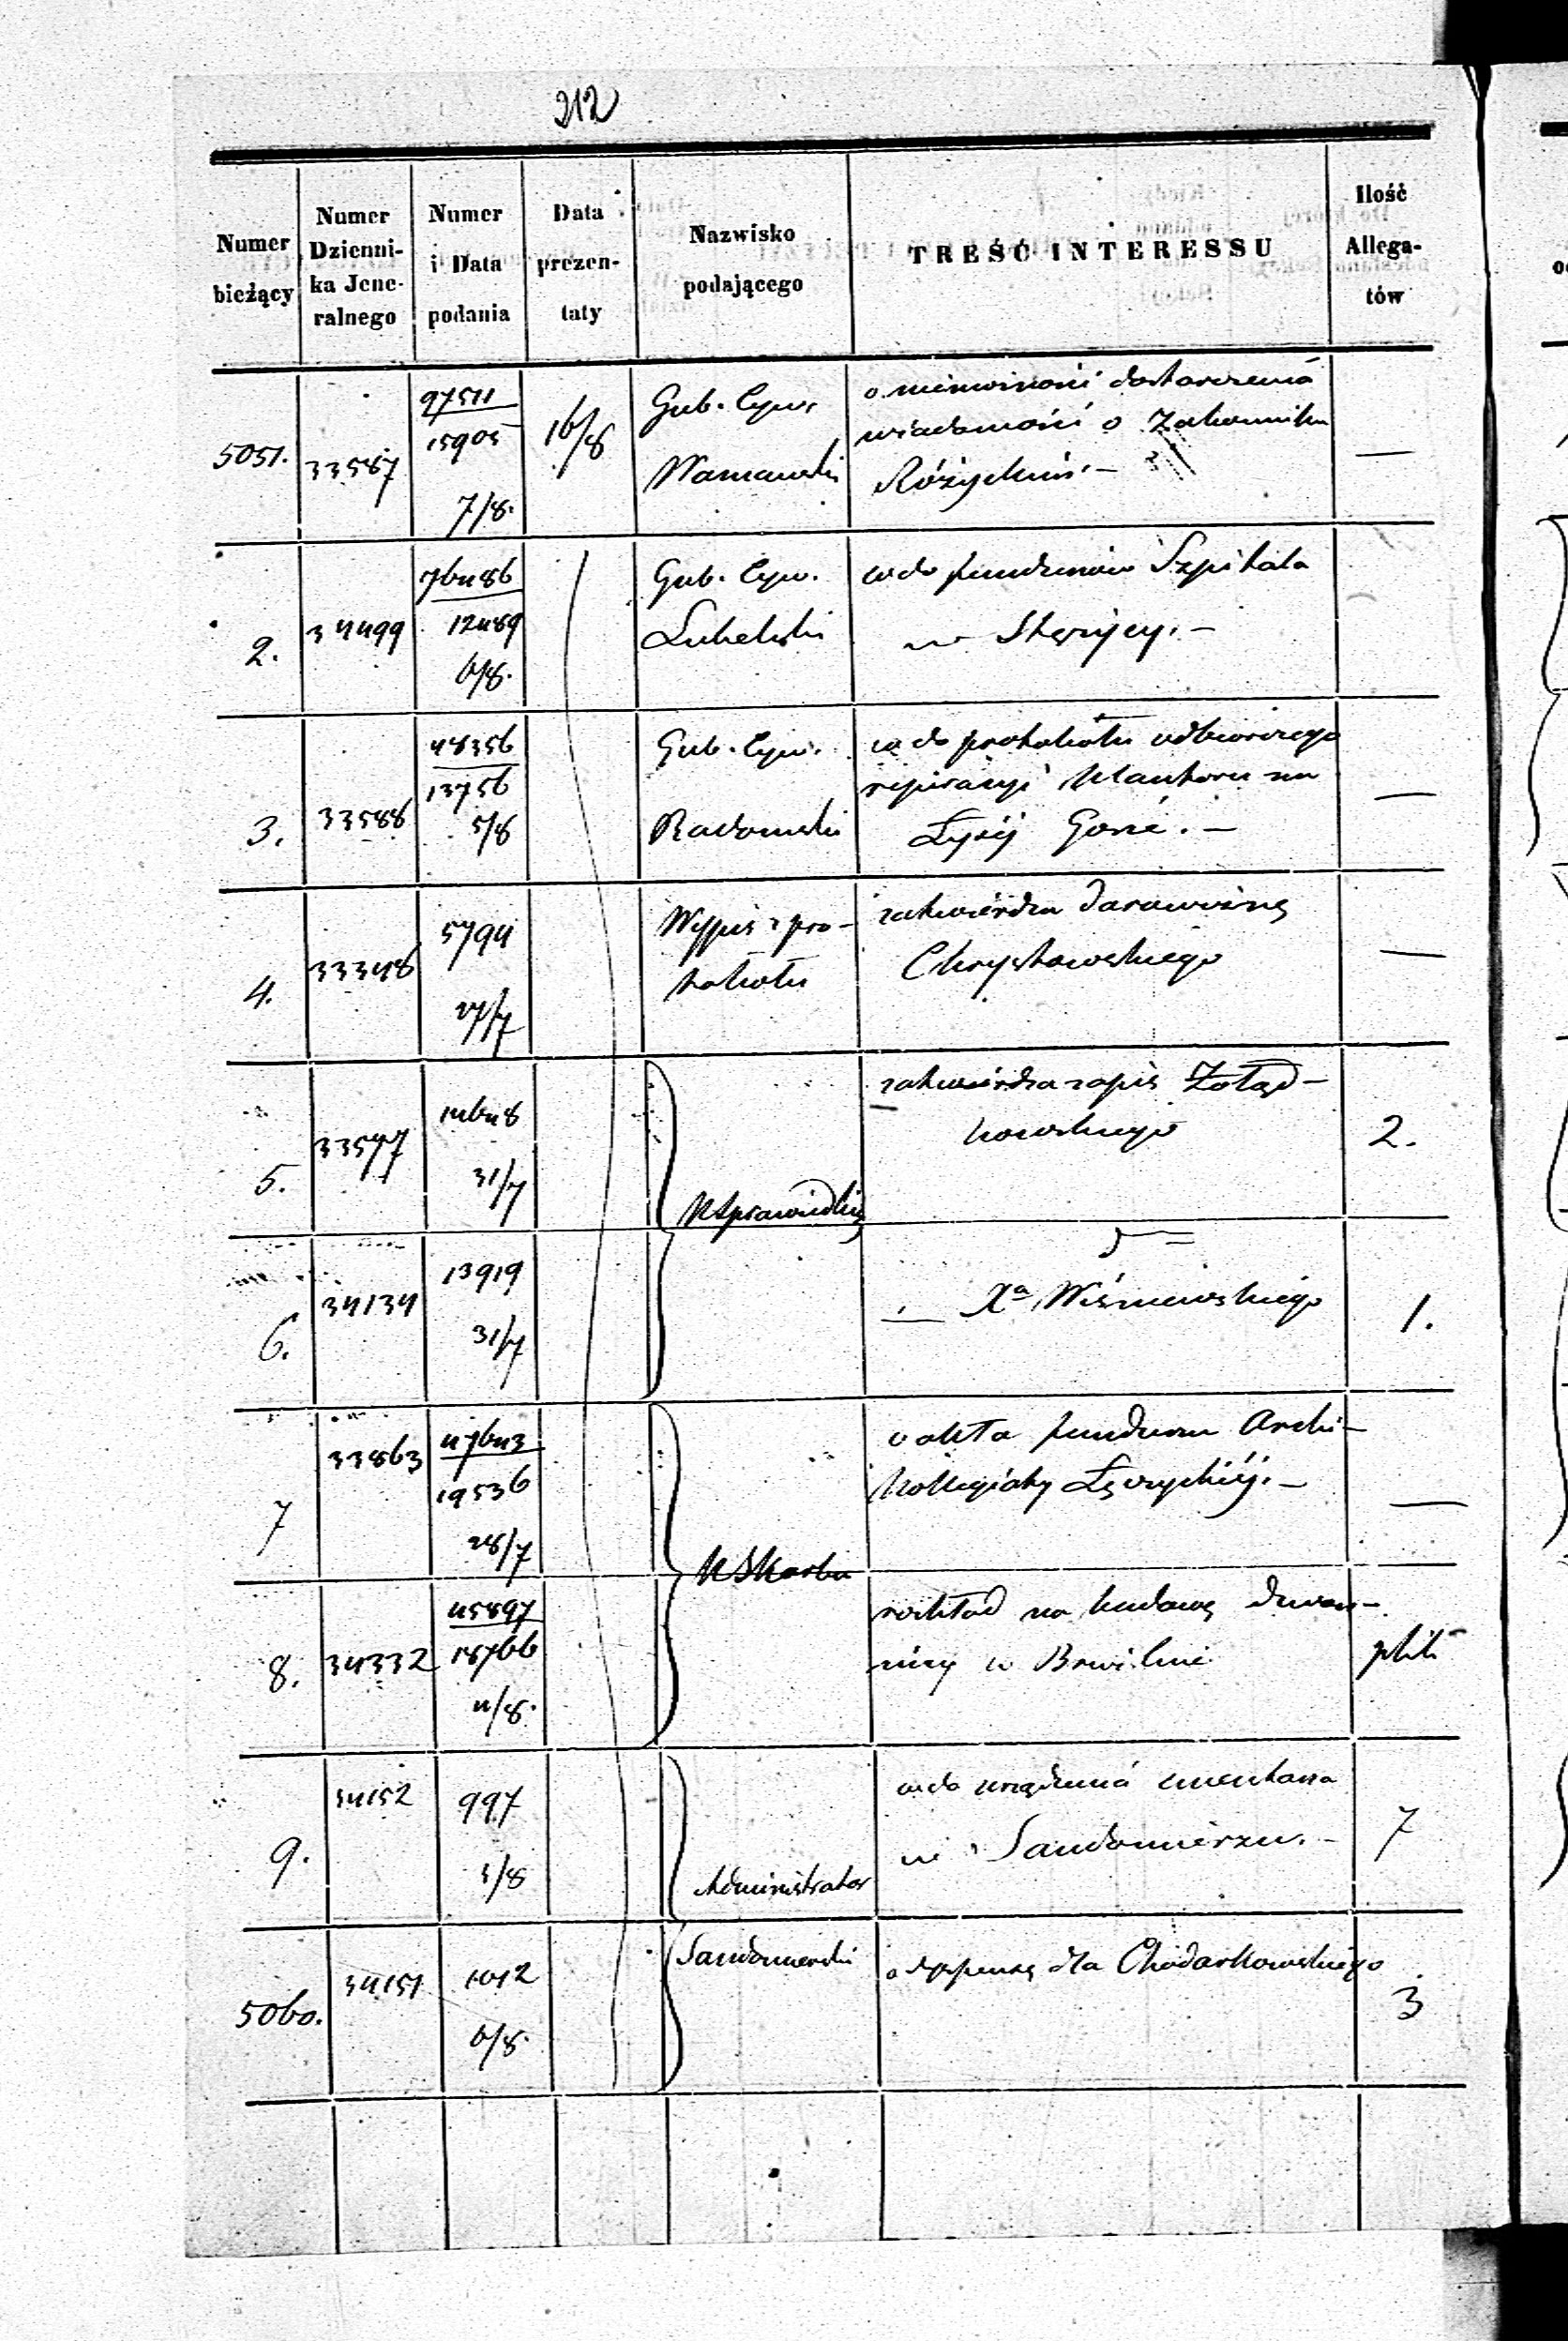 212
Numer bieżący | Numer Dzienni-ka Jene-ralnego | Numer i Data podania | Data prezen-taty | Nazwisko podającego | TREŚĆ INTERESSU | Ilość Allega-tów
5051. | 33587 | 97511 / 15905 7/8. | 16/8 | Gub. Cyw. Warszawski | o niemożności dostarczenia
wiadomości o Zakonniku
Różyckim. — | —
2. | 34499 | 76486 / 12489 6/8. | Gub. Cyw. Lubelski | co do funduszów Szpitala
w Stężycy. —
3. | 33588 | 48356 / 13756 5/8 | Gub. Cyw. Radomski | co do protokołu odbiorczego
reperacyi Klasztoru na
Łysej Górze. — | —
4. | 33348 | 5794 27/7 | Wypis z pro-
tokołu | zatwierdza darowiznę
Chrystowskiego | —
5. | 33547 | 14648 31/7 | K Sprawiedliw | zatwierdza zapis Żołąd-
kowskiego | 2.
6. | 34134 | 13919 31/7 | — Xa Wiśniewskiego | 1.
7 | 33863 | 47643 / 19536 28/7 | K Skarbu | o akta funduszu Archi-
kollegiaty Łęczyckiej. — | —
8. | 34332 | 45897 / 18766 4/8. | rozkład na budowę dzwon-
nicy w Brwilnie | plik
9. | 34152 | 997 5/8 | Administrator | co do urządzenia cmentarza
w Sandomierzu. — | 7
5060. | 34151 | 1012 6/8. | Sandomierski | o dyspensę dla Chodorkowskiego | 3